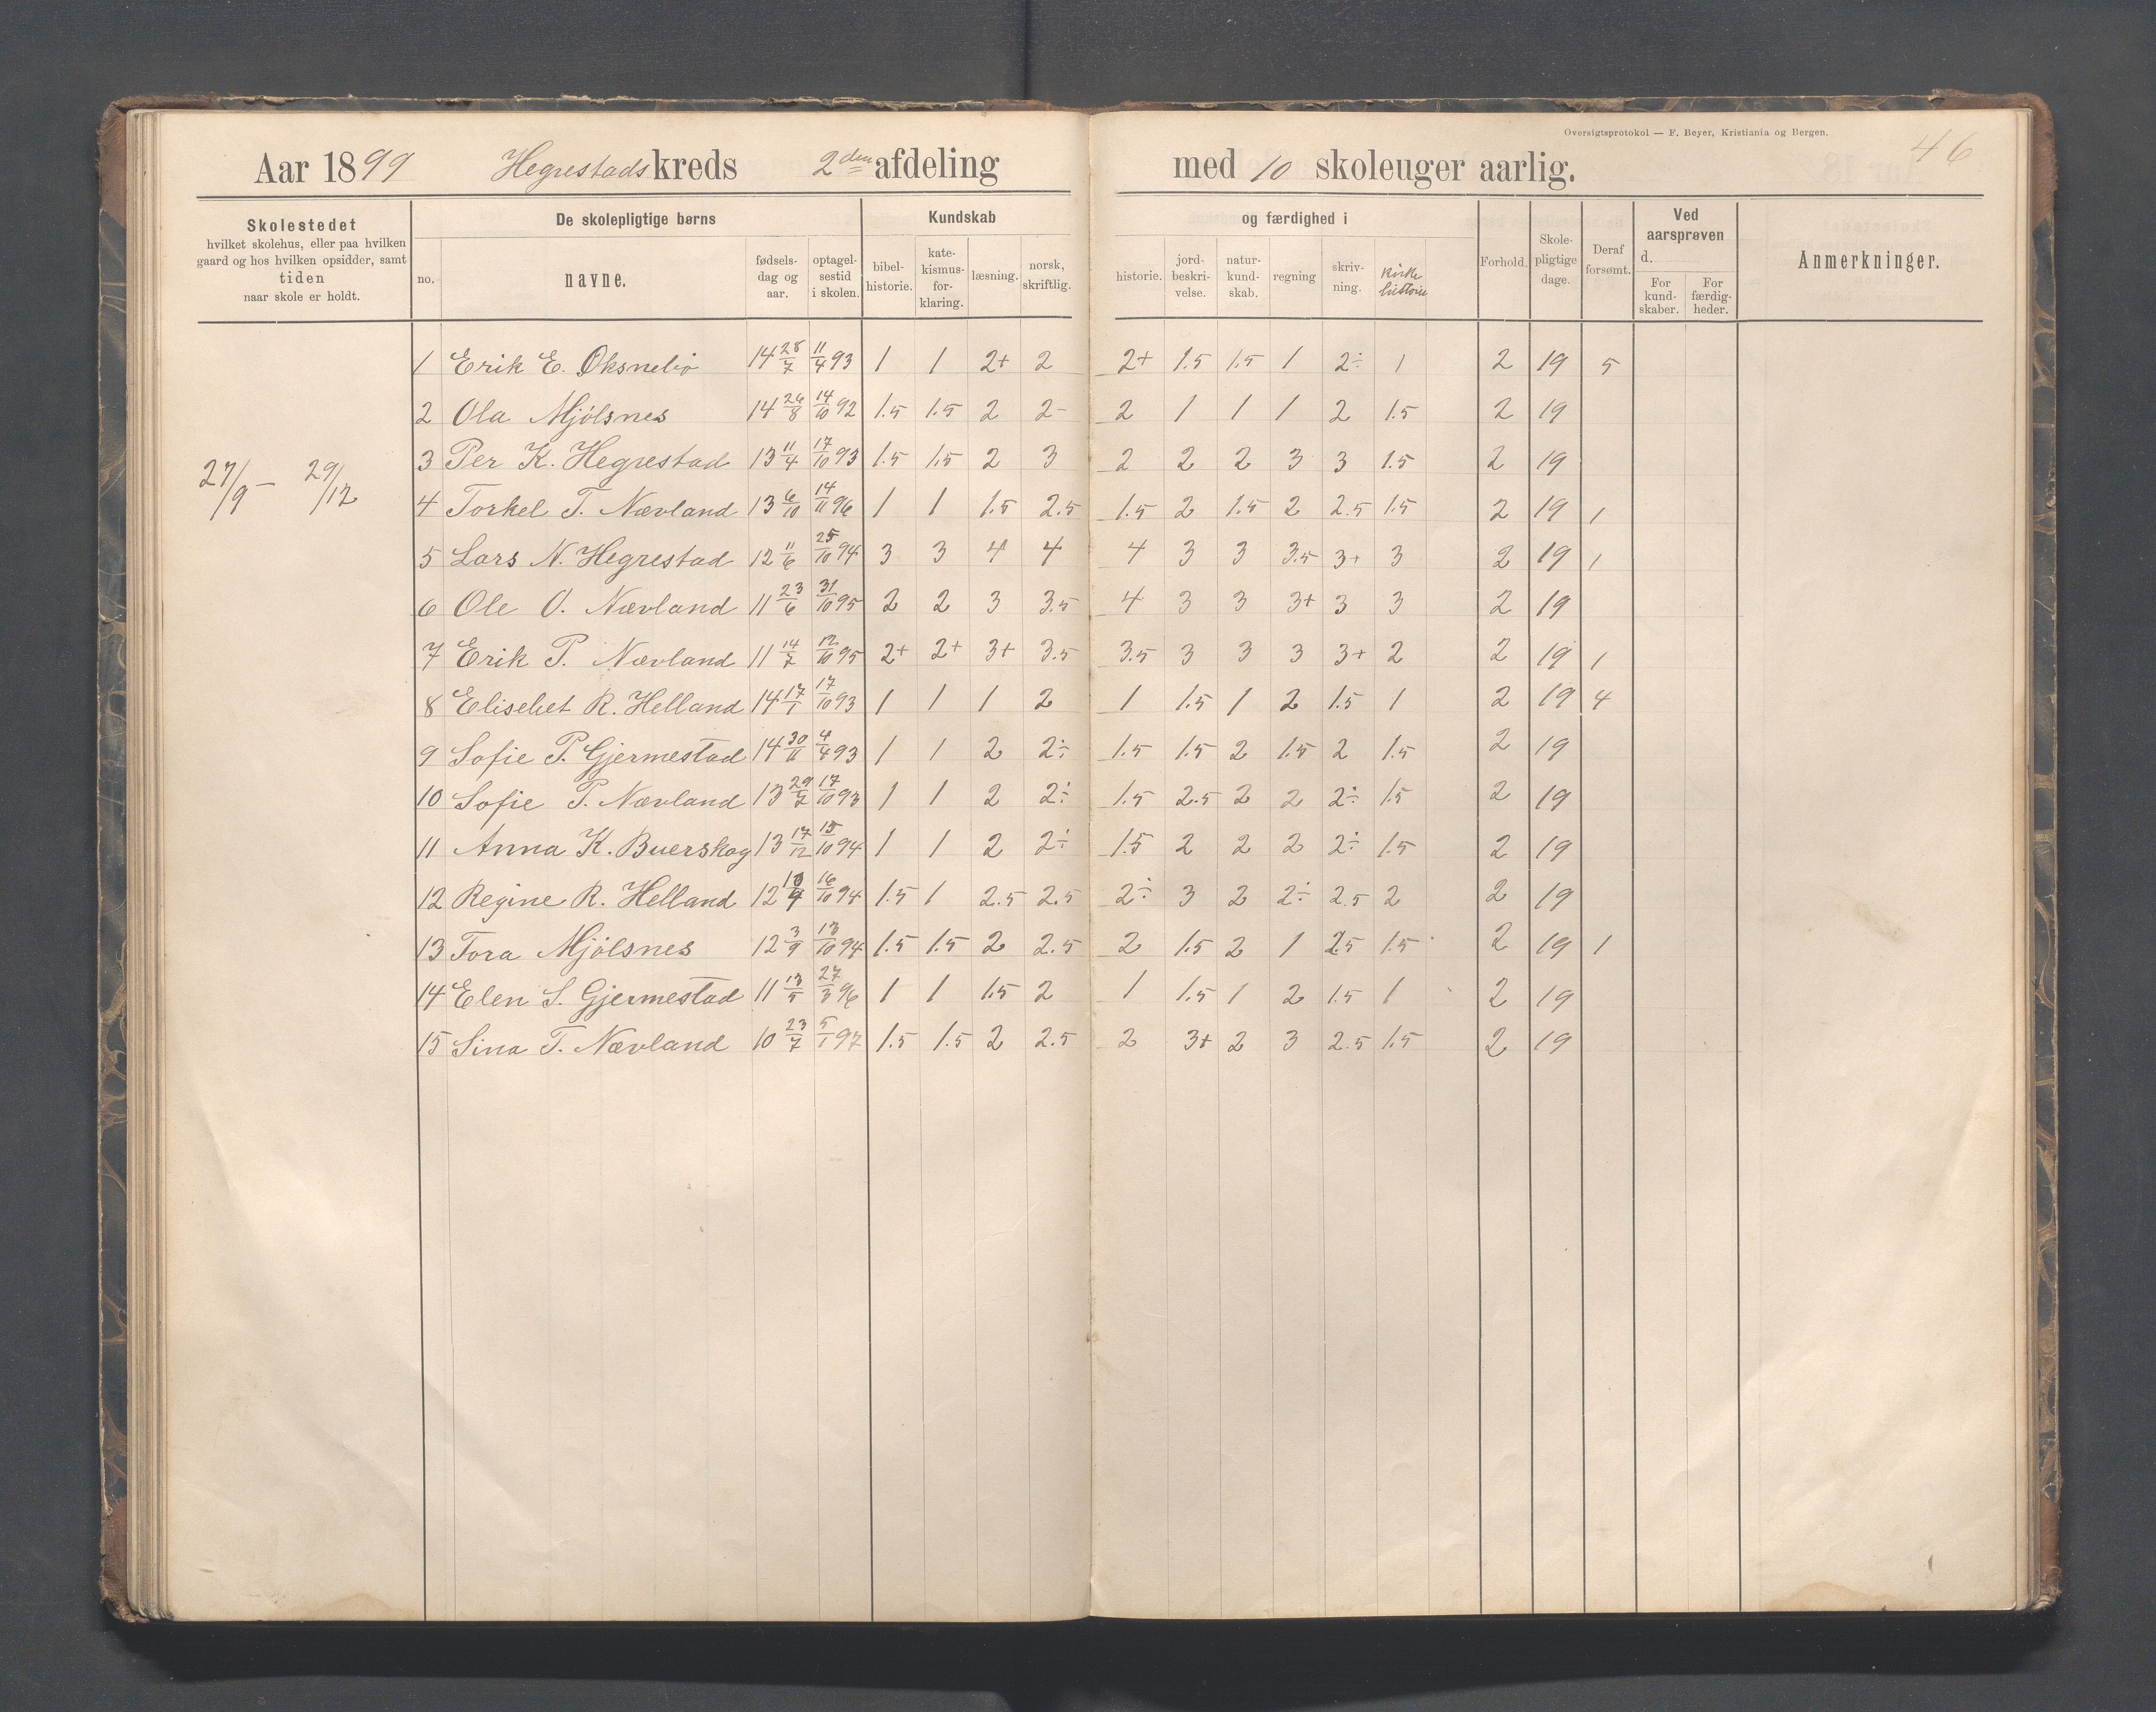 Oversigtsprotokol — F. Beyer, Kristiania og Bergen.
46
Aar 1899 Hegrestads kreds 2den afdeling med 10 skoleuger aarlig.
Skolestedet hvilket skolehus, eller paa hvilken gaard og hos hvilken opsidder, samt tiden naar skole er holdt.
De skolepligtige børns
no. navne. fødsels-dag og aar. optagel-sestid i skolen.
Kundskab og færdighed i
bibel-historie. kate-kismus-for-klaring. læsning. norsk, skriftlig. historie. jord-beskri-velse. natur-kund-skab. regning skriv-ning. Kirke historie
Forhold. Skole-pligtige dage. Deraf forsømt.
Ved aarsprøven d.
For kund-skaber. For færdig-heder.
Anmerkninger.
27/9 – 29/12
1 Erik E. Øksnebiø 14 28/7 11/4 93 1 1 2+ 2 2+ 1.5 1.5 1 2÷ 1 2 19 5
2 Ola Mjølsnes 14 26/8 14/10 92 1.5 1.5 2 2- 2 1 1 1 2 1.5 2 19
3 Per K. Hegrestad 13 11/4 17/10 93 1.5 1.5 2 3 2 2 2 3 3 1.5 2 19
4 Torkel T. Nævland 13 6/10 14/11 96 1 1 1.5 2.5 1.5 2 1.5 2 2.5 1.5 2 19 1
5 Lars N. Hegrestad 12 11/6 25/10 94 3 3 4 4 4 3 3 3.5 3+ 3 2 19 1
6 Ole O. Nævland 11 23/6 31/10 95 2 2 3 3.5 4 3 3 3+ 3 3 2 19
7 Erik P. Nævland 11 14/7 12/10 95 2+ 2+ 3+ 3.5 3.5 3 3 3 3+ 2 2 19 1
8 Elisebet R. Helland 14 17/1 17/10 93 1 1 1 2 1 1.5 1 2 1.5 1 2 19 4
9 Sofie P. Gjermestad 14 30/11 4/4 93 1 1 2 2÷ 1.5 1.5 2 1.5 2 1.5 2 19
10 Sofie P. Nævland 13 29/7 17/10 93 1 1 2 2÷ 1.5 2.5 2 2 2÷ 1.5 2 19
11 Anna K. Buerskog 13 17/12 15/10 94 1 1 2 2÷ 1.5 2 2 2 2÷ 1.5 2 19
12 Regine R. Helland 12 10/9 16/10 94 1.5 1 2.5 2.5 2÷ 3 2 2÷ 2.5 2 2 19
13 Tora Mjølsnes 12 3/9 13/10 94 1.5 1.5 2 2.5 2 1.5 2 1 2.5 1.5 2 19 1
14 Elen S. Gjermestad 11 13/5 27/3 96 1 1 1.5 2 1 1.5 1 2 1.5 1 2 19
15 Sina T. Nævland 10 23/7 5/1 97 1.5 1.5 2 2.5 2 3+ 2 3 2.5 1.5 2 19